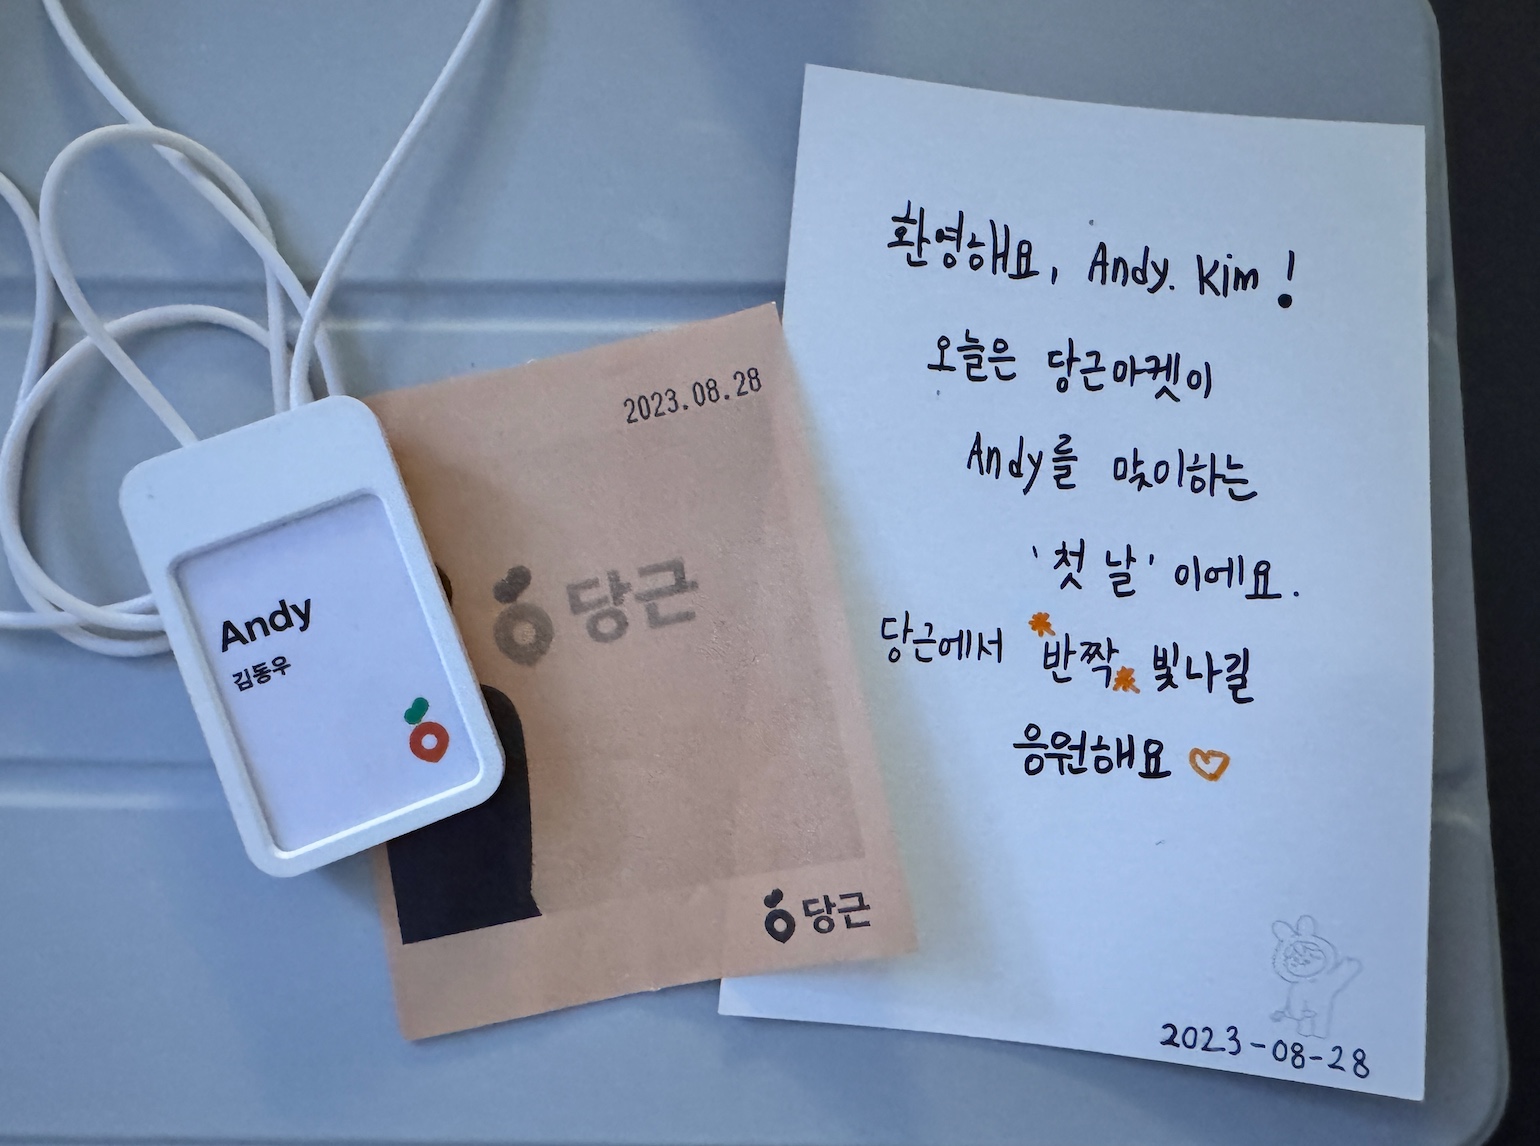 Andy
김동우
2023.08.28
당근
당근
환영해요, Andy. Kim !
오늘은 당근마켓이
Andy를 맞이하는
'첫 날' 이에요.
당근에서 반짝 빛나길
응원해요
2023-08-28